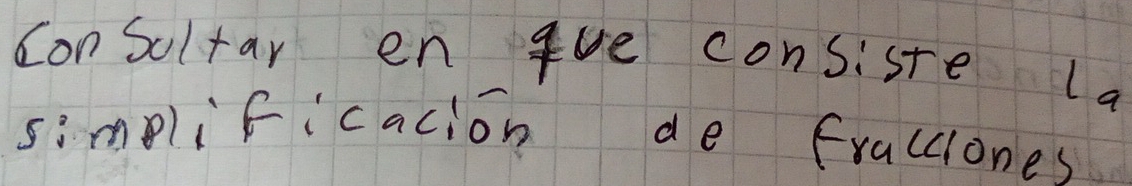 Consultar en que consiste la
simplificación de fracciones